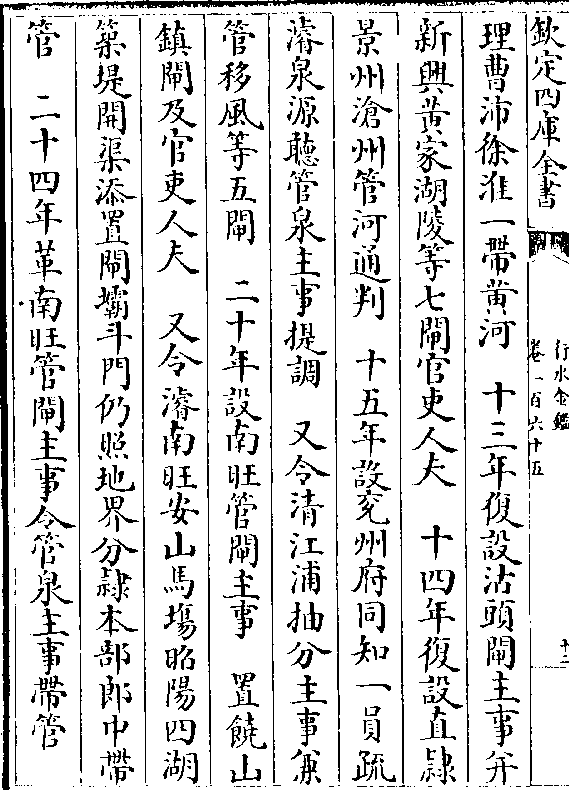 欽定四庫全書
行水金鑑
卷一百六十五
十二
理曹沛徐淮一帶黄河　十三年復設沽頭閘主事并
新興黄家湖陵等七閘官吏人夫　十四年復設直隸
景州滄州管河通判　十五年設兗州府同知一員疏
濬泉源聽管泉主事提調　又令清江浦抽分主事兼
管移風等五閘　二十年設南旺管閘主事　置饒山
鎮閘及官吏人夫　又令濬南旺安山馬塲昭陽四湖
築堤開渠添置閘壩斗門仍照地界分隷本部郎中帶
管　二十四年革南旺管閘主事令管泉主事帶管